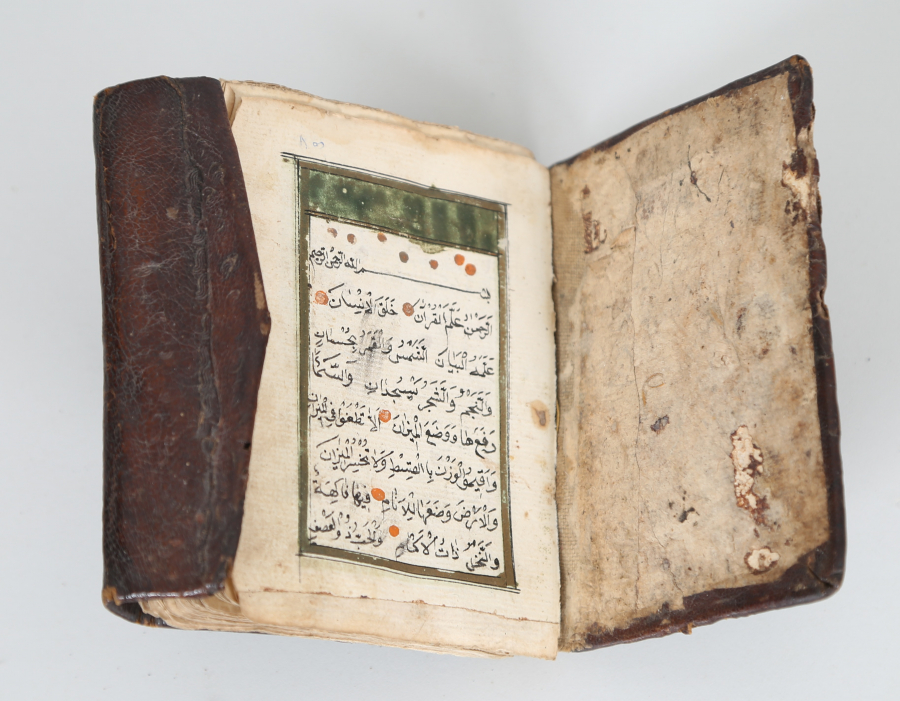 بسم الله الرحمن الرحيم
الرحمن علم القرآن خلق الإنسان
علمه البيان الشمس والقمر بحسبان
والنجم والشجر يسجدان والسماء
رفعها ووضع الميزان ألا تطغوا في الميزان
وأقيموا الوزن بالقسط ولا تخسروا الميزان
والأرض وضعها للأنام فيها فاكهة
والنخل ذات الأكمام والحب ذو العصف